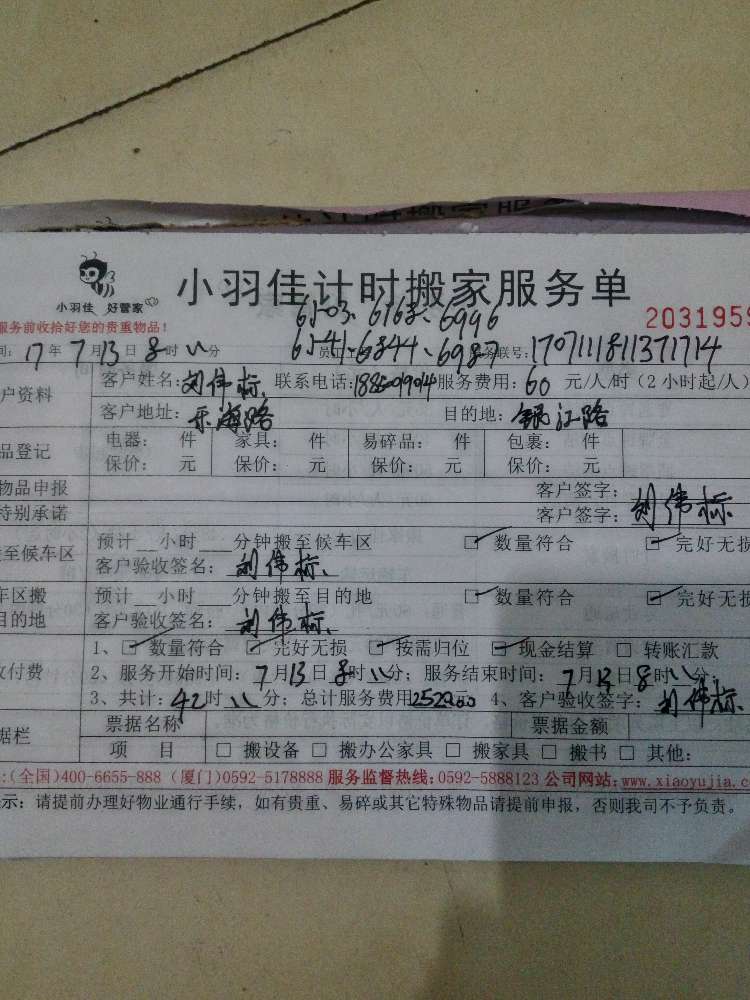 小羽佳 好管家
小羽佳计时搬家服务单
服务前收拾好您的贵重物品!
6503、6163、6996
2031959
间: 17 年 7 月 13 日 8 时 分 6541-6344、6987 服务联号: 1707111811371714
户资料 客户姓名: 刘伟标 联系电话: 服务费用: 60 元/人/时(2小时起/人)
客户地址: 乐海路 目的地: 银江路
品登记 电器: 件 家具: 件 易碎品: 件 包裹: 件
保价: 元 保价: 元 保价: 元 保价: 元
物品申报 客户签字:
特别承诺 客户签字: 刘伟标
至候车区 预计 小时 分钟搬至候车区 ☑ 数量符合 ☑ 完好无损
客户验收签名: 刘伟标
车区搬 预计 小时 分钟搬至目的地 ☑ 数量符合 ☑ 完好无损
目的地 客户验收签名: 刘伟标
1、☑ 数量符合 ☑ 完好无损 ☑ 按需归位 ☑ 现金结算 □ 转账汇款
付费 2、服务开始时间: 7 月 13 日 8 时 分; 服务结束时间: 7 月 13 日 8 时 分;
3、共计: 42 时 分; 总计服务费用 2520.00 元 4、客户验收签字: 刘伟标
据栏 票据名称 票据金额
项 目 □ 搬设备 □ 搬办公家具 □ 搬家具 □ 搬书 □ 其他:
:(全国)400-6655-888 (厦门)0592-5178888 服务监督热线:0592-5888123 公司网站:www.xiaoyujia.co
示: 请提前办理好物业通行手续, 如有贵重、易碎或其它特殊物品请提前申报, 否则我司不予负责。